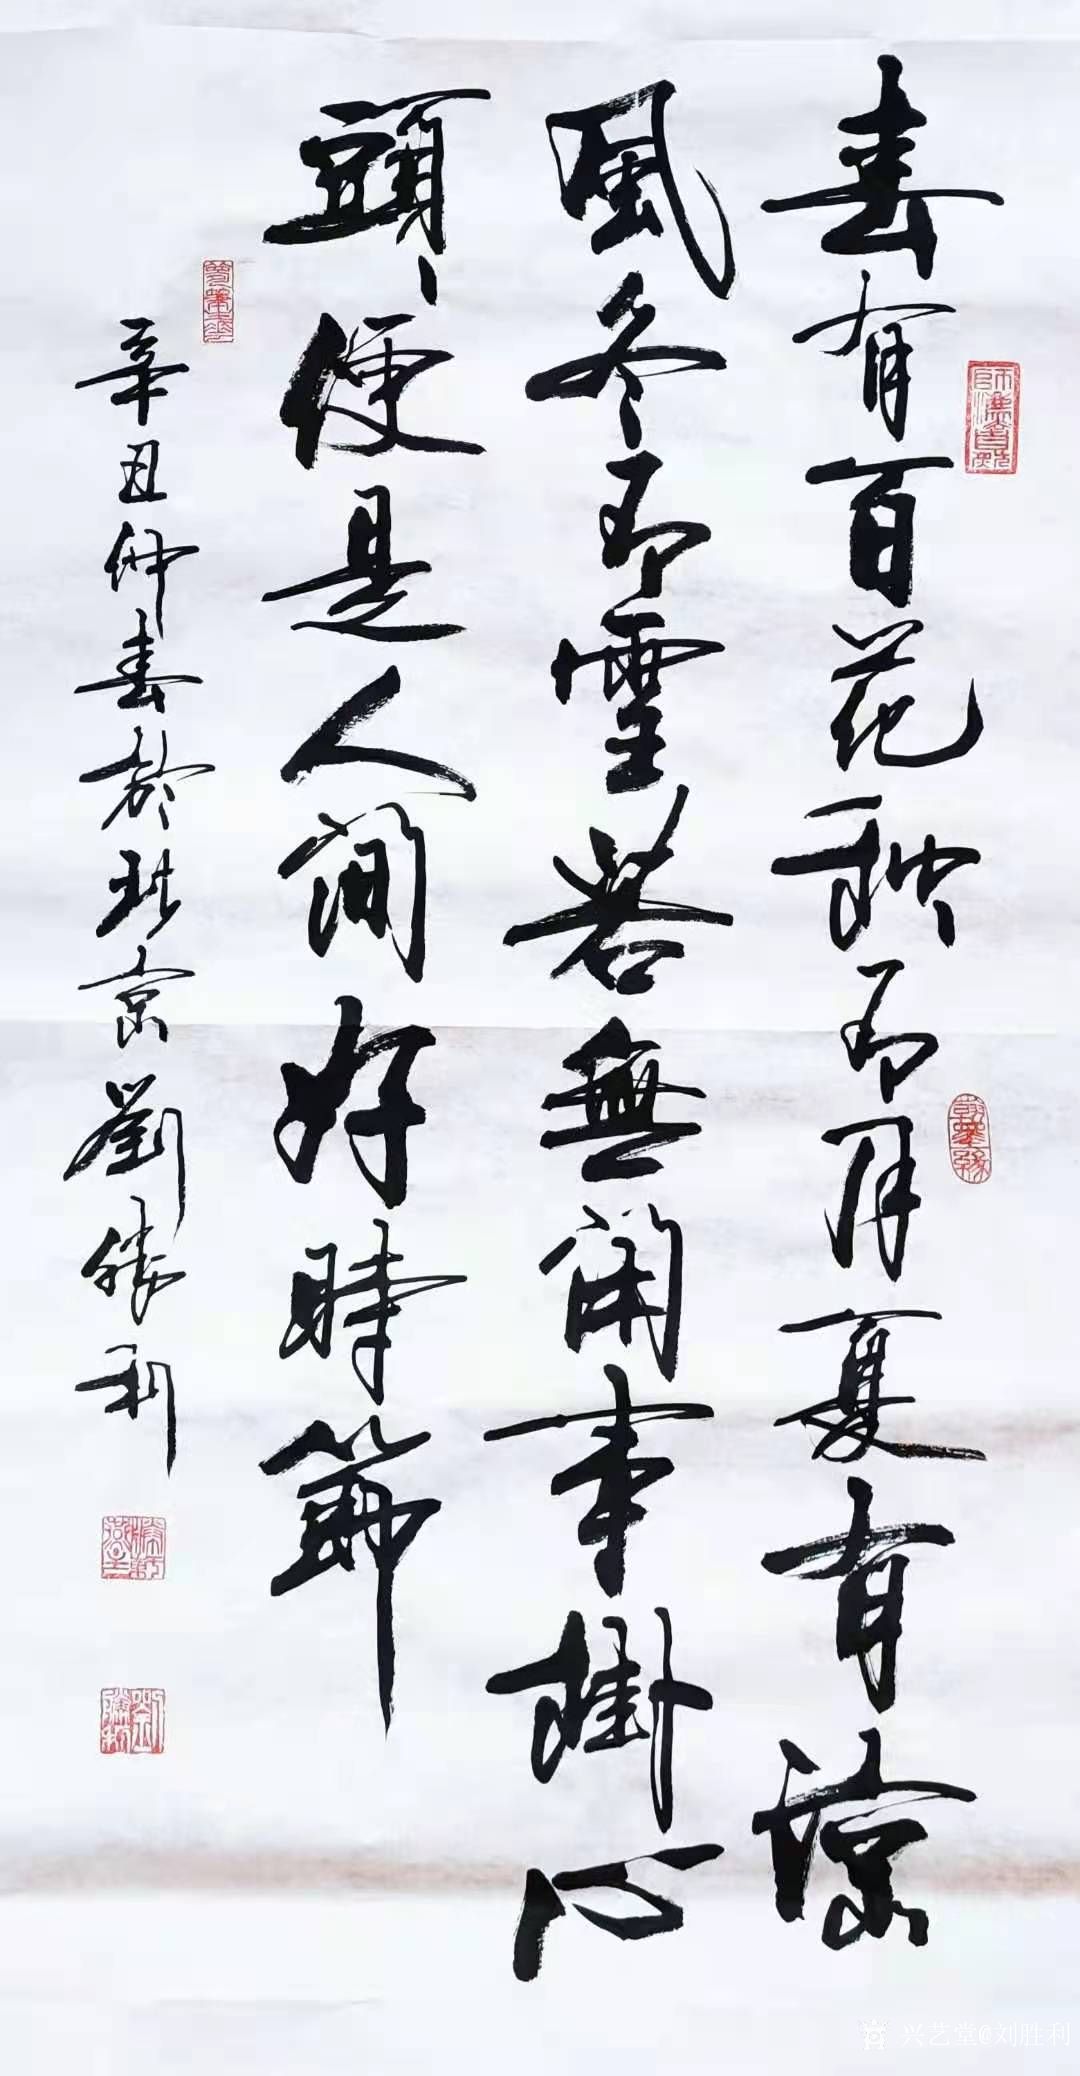 春有百花秋有月夏有涼
風冬有雪若無閑事掛心
頭便是人間好時節
辛丑仲春於北京劉勝利
兴艺堂@刘胜利